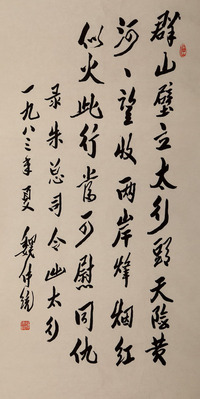 群山壁立太行頭天险黄
河一望收两岸烽烟红
似火此行當可慰同仇
录朱总司令出太行
一九八三年夏 魏